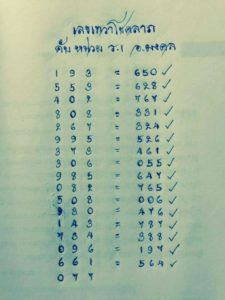 เลขเทวาโชคลาภ
ดับ หน่วย ว:1 อ.มงคล
193 = 650 ✓
553 = 628 ✓
402 = 767 ✓
808 = 331 ✓
267 = 324 ✓
991 = 526 ✓
373 = 461 ✓
306 = 055 ✓
985 = 647 ✓
082 = 765 ✓
508 = 006 ✓
930 = 476 ✓
143 = 487 ✓
734 = 388 ✓
096 = 197 ✓
661 = 564 ✓
077